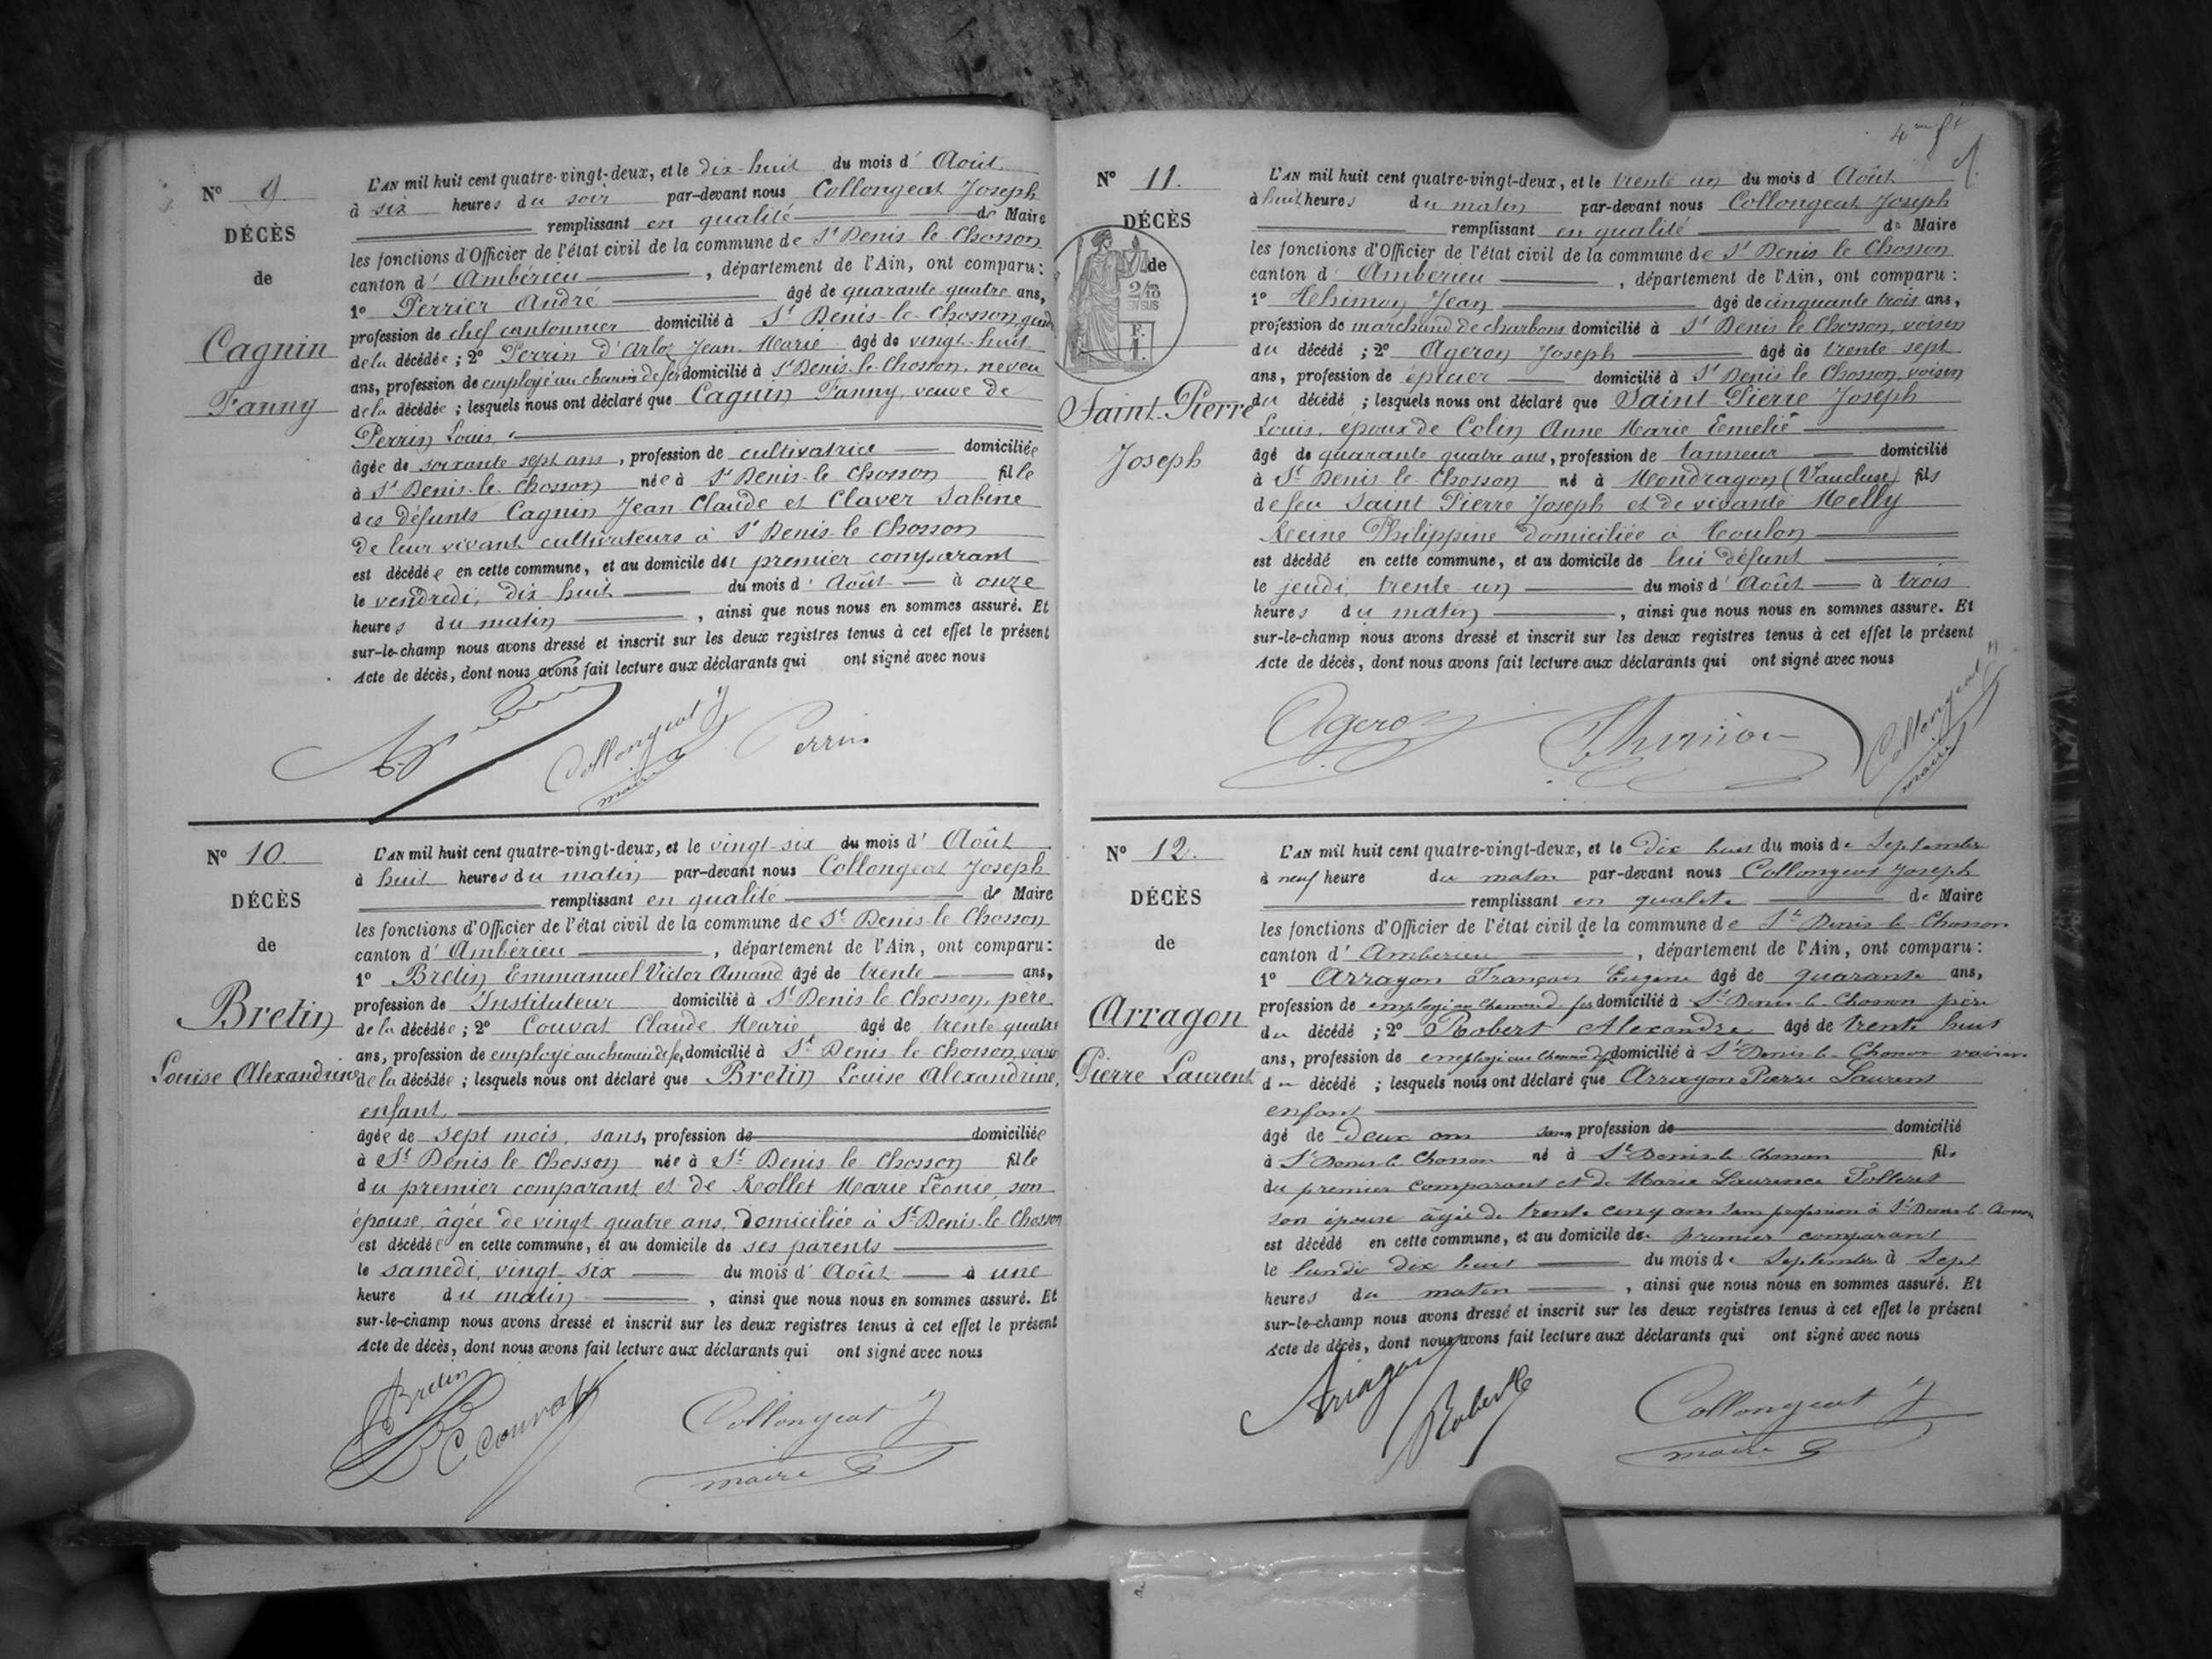 N° 9.
DÉCÈS
de
Cagnin
Fanny
L'AN mil huit cent quatre-vingt-deux, et le dix-huit du mois d'Août
à six heures du soir par-devant nous Collongeat Joseph
remplissant en qualité de Maire
les fonctions d'Officier de l'état civil de la commune de St Denis le Chosson
canton d'Ambérieu, département de l'Ain, ont comparu:
1° Perrier André âgé de quarante quatre ans,
profession de chef cantonnier domicilié à St Denis-le-Chosson, gendre
de la décédée; 2° Perrin d'Arloz Jean Marie âgé de vingt-huit
ans, profession de employé au chemin de fer domicilié à St Denis-le-Chosson, neveu
de la décédée; lesquels nous ont déclaré que Cagnin Fanny, veuve de
Perrin Louis,
âgée de soixante sept ans, profession de cultivatrice domiciliée
à St Denis-le-Chosson née à St Denis-le Chosson fille
des défunts Cagnin Jean Claude et Claver Sabine
de leur vivant cultivateurs à St Denis-le Chosson
est décédée en cette commune, et au domicile du premier comparant
le vendredi, dix-huit du mois d'Août à onze
heures du matin, ainsi que nous nous en sommes assuré. Et
sur-le-champ nous avons dressé et inscrit sur les deux registres tenus à cet effet le présent
Acte de décès, dont nous avons fait lecture aux déclarants qui ont signé avec nous
Collongeat J Perrin
maire
N° 10.
DÉCÈS
de
Bretin
Louise Alexandrine
L'AN mil huit cent quatre-vingt-deux, et le vingt-six du mois d'Août
à huit heures du matin par-devant nous Collongeat Joseph
remplissant en qualité de Maire
les fonctions d'Officier de l'état civil de la commune de St Denis-le Chosson
canton d'Ambérieu, département de l'Ain, ont comparu:
1° Bretin Emmanuel Victor Amand âgé de trente ans,
profession de Instituteur domicilié à St Denis-le Chosson, père
de la décédée; 2° Couvat Claude Marie âgé de trente quatre
ans, profession de employé au chemin de fer, domicilié à St Denis-le-Chosson, voisin
de la décédée; lesquels nous ont déclaré que Bretin Louise Alexandrine,
enfant,
âgée de sept mois, sans, profession de domiciliée
à St Denis le Chosson née à St Denis le Chosson fille
du premier comparant et de Rollet Marie Léonie, son
épouse, âgée de vingt-quatre ans, domiciliée à St Denis-le-Chosson
est décédée en cette commune, et au domicile de ses parents
le samedi, vingt-six du mois d'Août à une
heure du matin, ainsi que nous nous en sommes assuré. Et
sur-le-champ nous avons dressé et inscrit sur les deux registres tenus à cet effet le présent
Acte de décès, dont nous avons fait lecture aux déclarants qui ont signé avec nous
Bretin
C Couvat Collongeat J
maire
N° 11.
DÉCÈS
de
Saint-Pierre
Joseph
L'AN mil huit cent quatre-vingt-deux, et le trente un du mois d'Août
à huit heures du matin par-devant nous Collongeat Joseph
remplissant en qualité de Maire
les fonctions d'Officier de l'état civil de la commune de St Denis le Chosson
canton d'Ambérieu, département de l'Ain, ont comparu:
1° Thimon Jean âgé de cinquante trois ans,
profession de marchand de charbons domicilié à St Denis le Chosson, voisin
du décédé; 2° Ageron Joseph âgé de trente sept
ans, profession de épicier domicilié à St Denis le Chosson, voisin
du décédé; lesquels nous ont déclaré que Saint Pierre Joseph
Louis, époux de Colin Anne Marie Emelie
âgé de quarante quatre ans, profession de tanneur domicilié
à St Denis le Chosson né à Mondragon (Vaucluse) fils
de feu Saint Pierre Joseph et de vivante Melly
Reine Philippine domiciliée à Toulon
est décédé en cette commune, et au domicile de lui défunt
le jeudi, trente un du mois d'Août à trois
heures du matin, ainsi que nous nous en sommes assuré. Et
sur-le-champ nous avons dressé et inscrit sur les deux registres tenus à cet effet le présent
Acte de décès, dont nous avons fait lecture aux déclarants qui ont signé avec nous
Ageron Thimon Collongeat J
maire
N° 12.
DÉCÈS
de
Arragon
Pierre Laurent
L'AN mil huit cent quatre-vingt-deux, et le dix huit du mois de Septembre
à neuf heure du matin par-devant nous Collongeat Joseph
remplissant en qualité de Maire
les fonctions d'Officier de l'état civil de la commune de St Denis-le-Chosson
canton d'Amberieu, département de l'Ain, ont comparu:
1° Arragon François Eugène âgé de quarante ans,
profession de employé au chemin de fer domicilié à St Denis-le-Chosson père
du décédé; 2° Robert Alexandre âgé de trente huit
ans, profession de employé au chemin de fer domicilié à St Denis-le-Chosson voisin
du décédé; lesquels nous ont déclaré que Arragon Pierre Laurent
enfant
âgé de deux ans sans profession de domicilié
à St Denis-le-Chosson né à St Denis-le-Chosson fils
du premier comparant et de Marie Laurence Folleret
son épouse âgée de trente cinq ans sans profession à St Denis-le-Chosson
est décédé en cette commune, et au domicile du premier comparant
le lundi dix huit du mois de Septembre à Sept
heures du matin, ainsi que nous nous en sommes assuré. Et
sur-le-champ nous avons dressé et inscrit sur les deux registres tenus à cet effet le présent
Acte de décès, dont nous avons fait lecture aux déclarants qui ont signé avec nous
Arragon Robert Collongeat J
maire